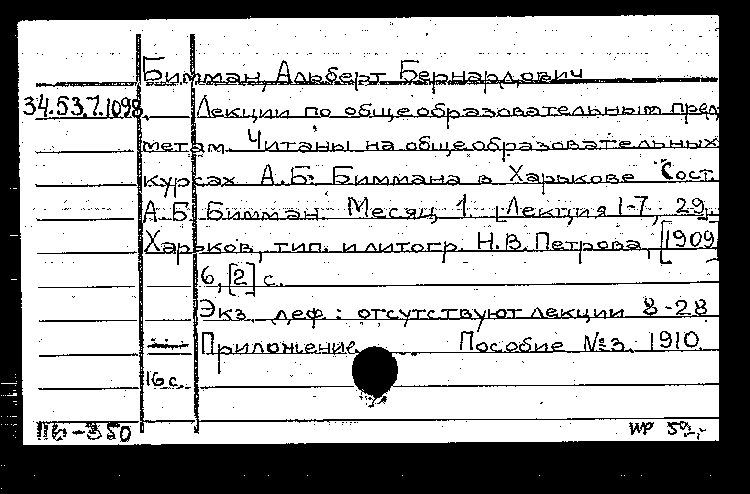 Бимман, Альберт Бернардович
34.53.7.1098. Лекции по общеобразовательным пред
метам. Читаны на общеобразовательных
курсах А.Б. Биммана в Харькове Сост.
А.Б. Бимман. Месяц 1. [Лекция 1-7, 29].
Харьков, тип. и литогр. Н.В. Петрова, [1909]
6, [2] с.
Экз. деф.: отсутствуют лекции 8-28
Приложение ... Пособие №3. 1910.
16 с.